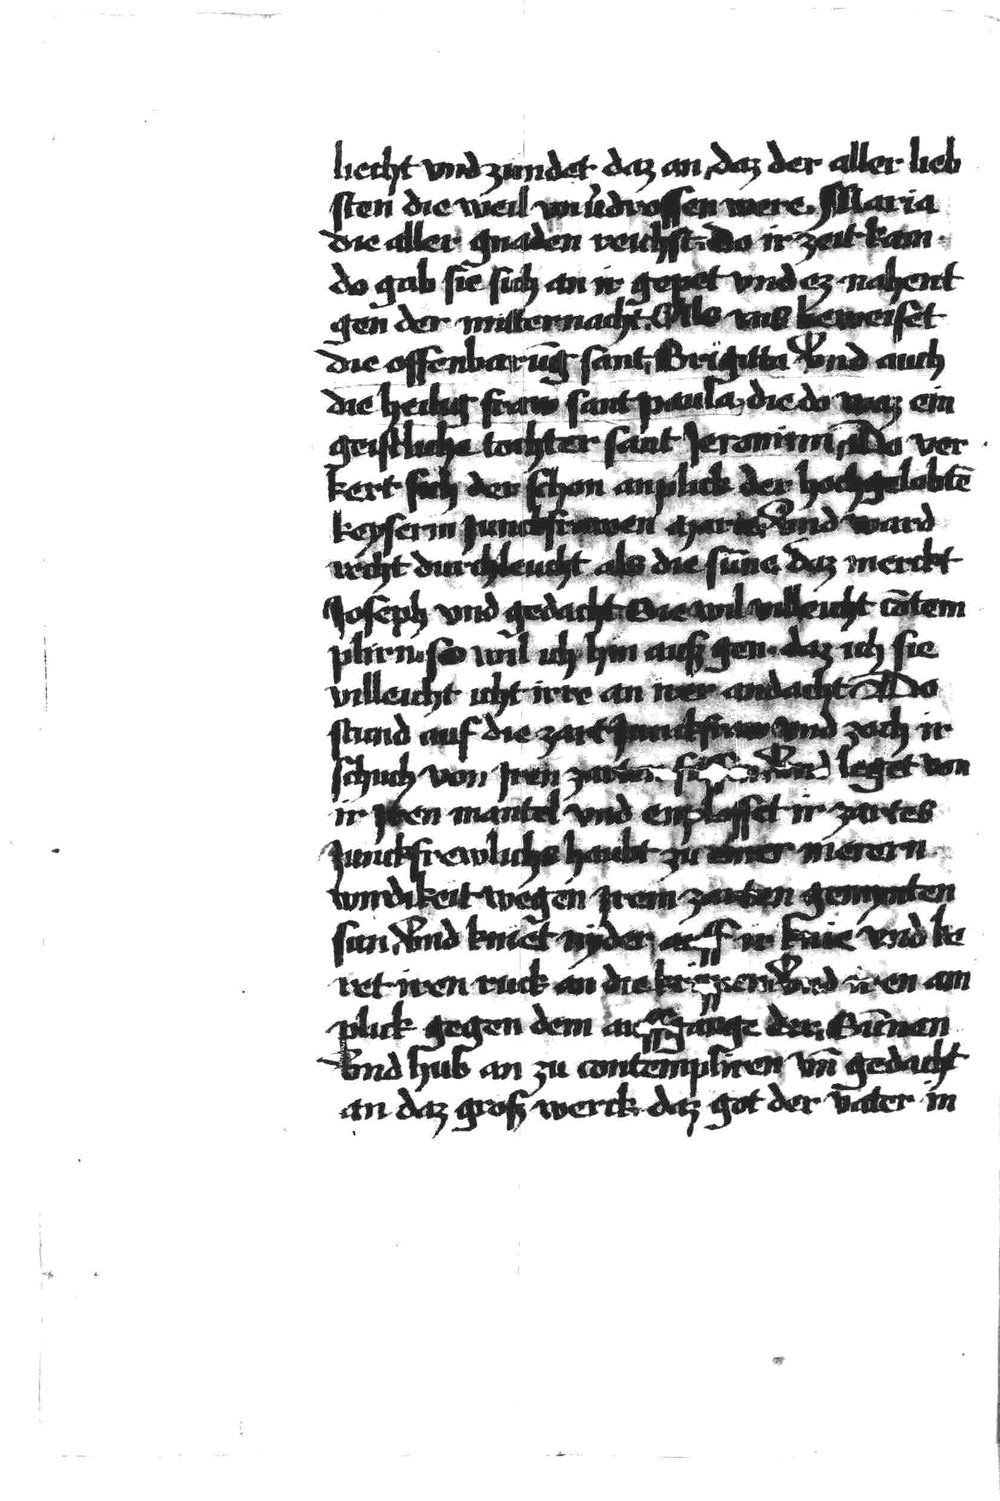 liecht vnd zundet daz an, daz der aller lieb
sten die weil vnūdrossen were. Maria
die aller gnaden reichst. Do ir zeit kam.
do gab sie sich an ir gepet vnd ez nahent
gen der mitternacht. Als vns beweiset
die offenbarūg sant Brigitta Vnd auch
die heilig fraw sant paula, die do waz ein
geistliche tochter sant Jeronimi, Do ver
kert sich der schon anplick der hochgelobtē
keyserin Junckfrawen Marie, Vnd ward
recht durchleucht als die sūne. daz merckt
Joseph vnd gedacht. Sie wil villeicht cōtem
plirn. so wil ich hin auß gen. daz ich sie
villeicht icht irre an irer andacht. Do
stund auf die zart Junckfraw vnd zoch ir
schuch von Jren zarten Vnd leget von
ir Jren mantel vnd enplosset ir zartes
Junckfrewlichs haubt zu einer merern
wirdikeit wegen Jrem zarten gemynten
sun, Vnd kniet nyder auff ir knie vnd ke
ret iren ruck an die krippen, Vnd iren an
plick gegen dem auffgange der Sūnnen
Vnd hub an zu contēmpliren vn̄ gedacht
an daz groß werck. daz got der vater in